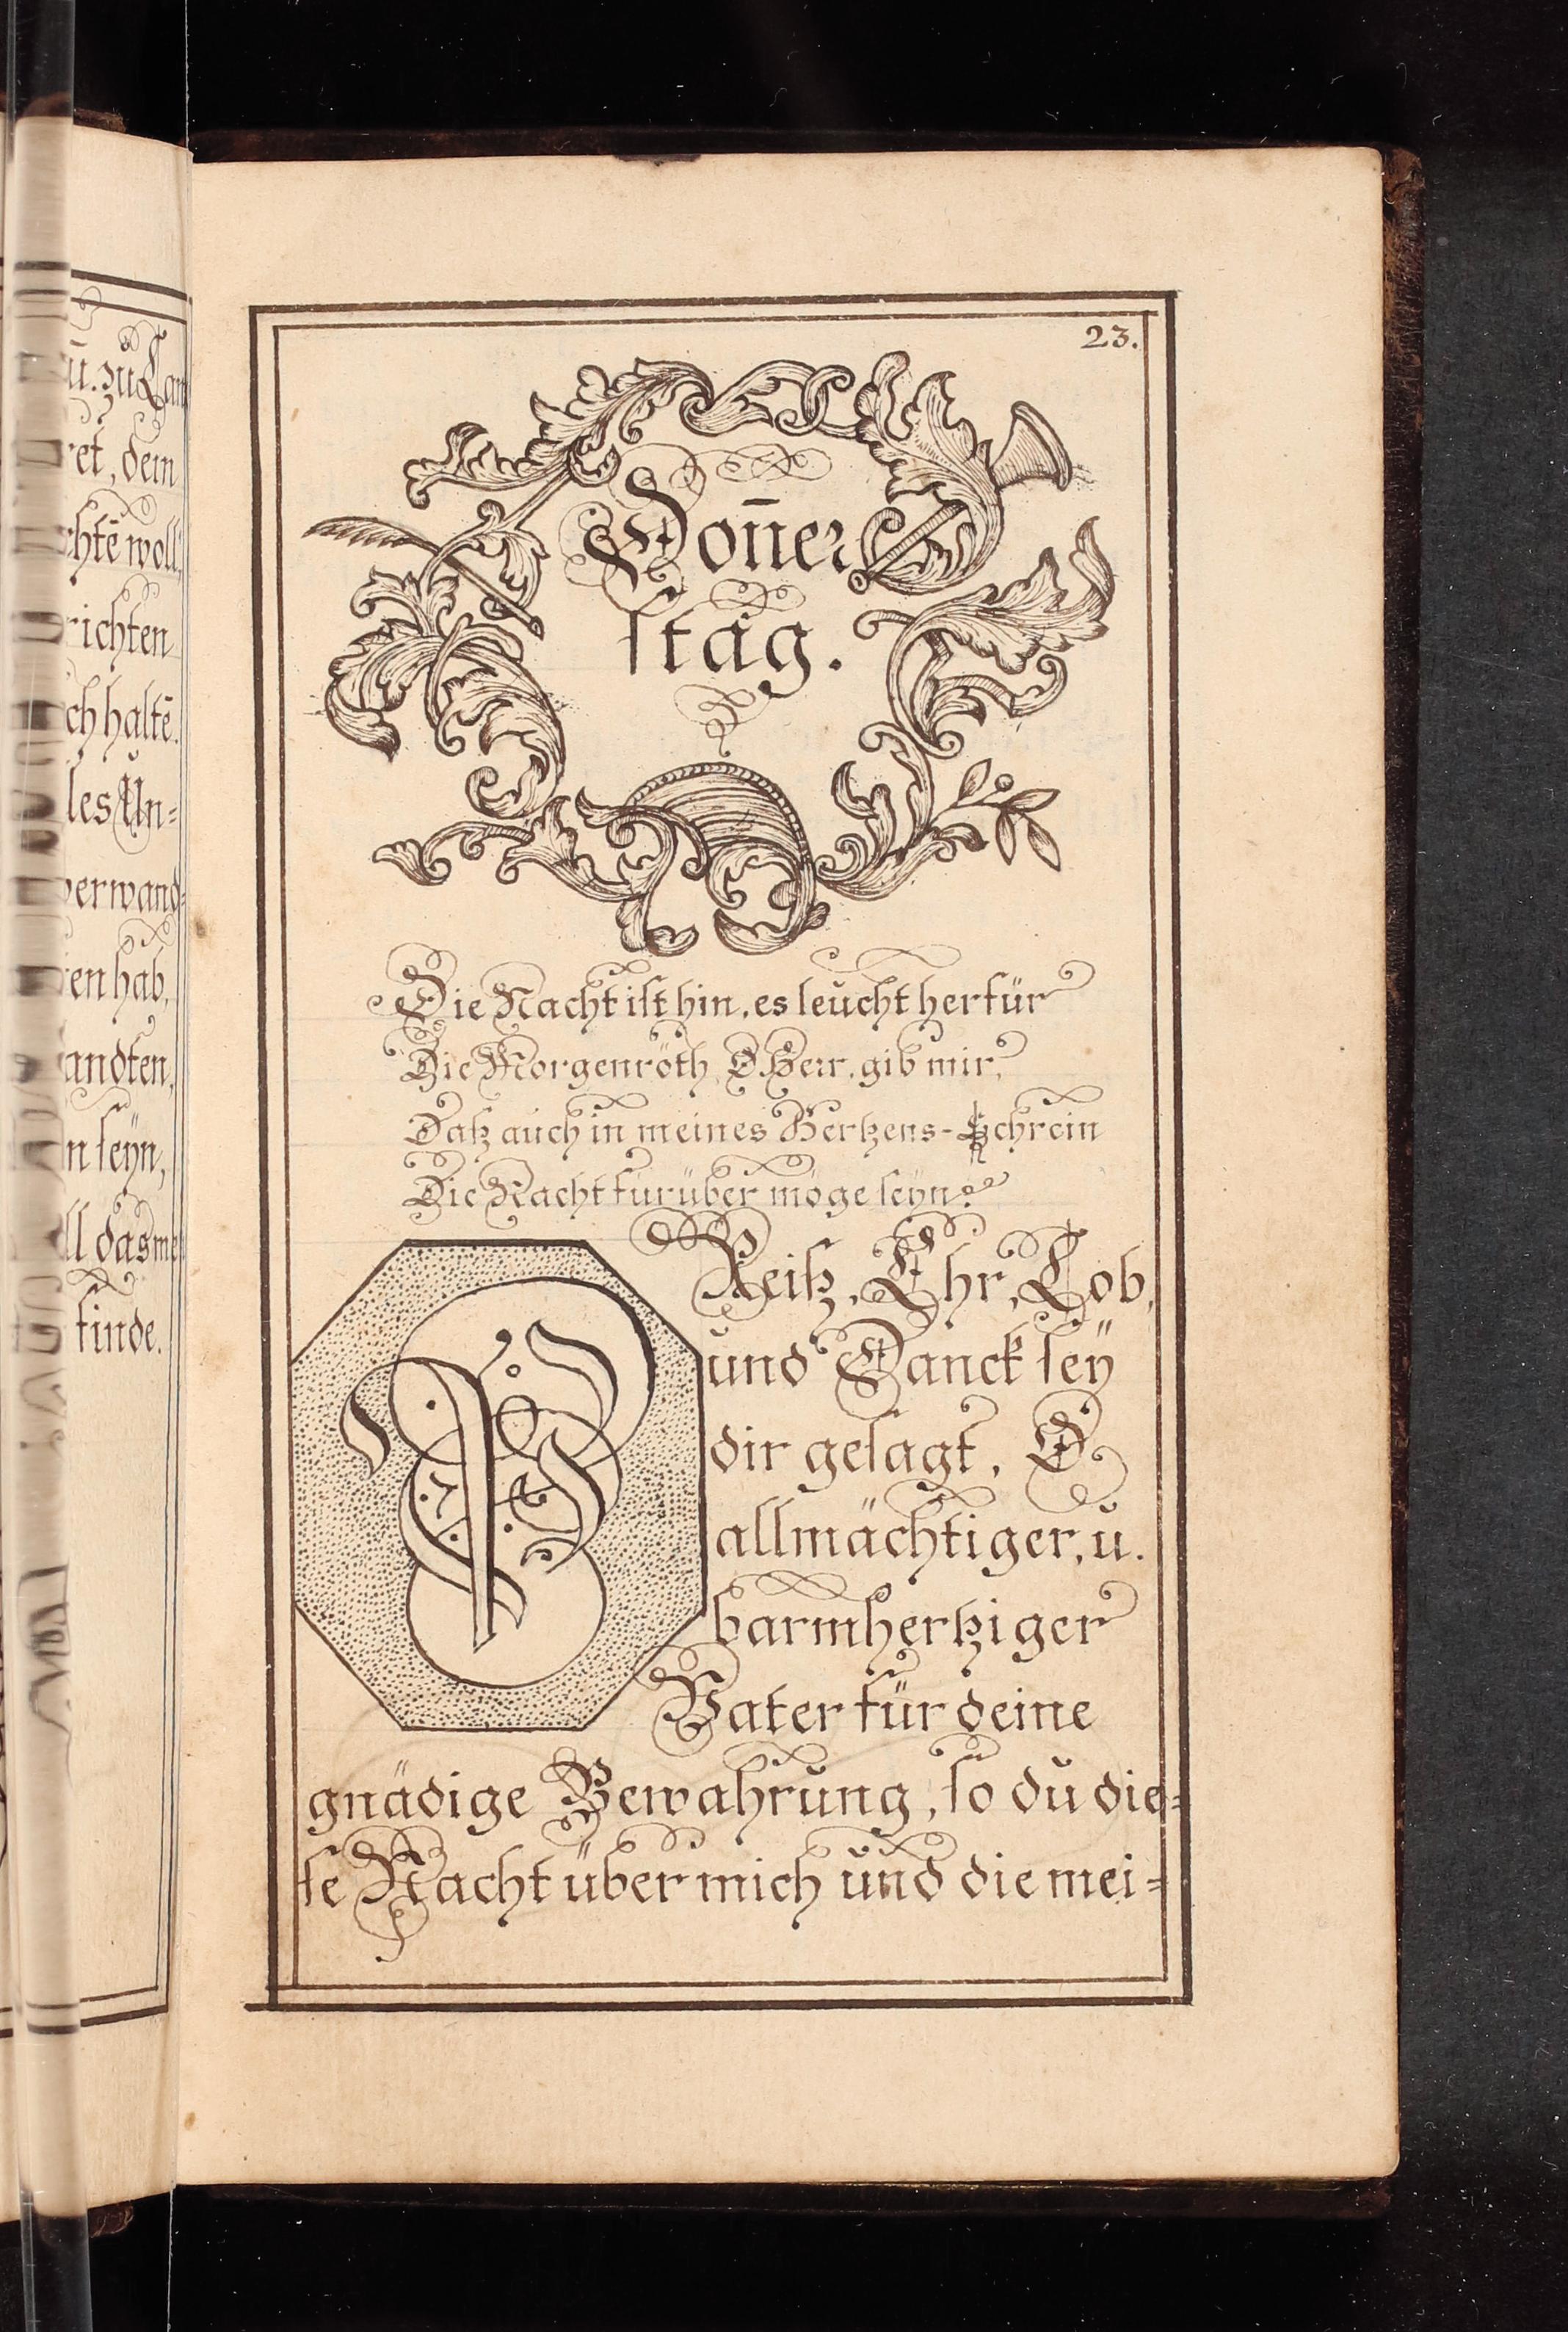 ū. zu Lan
ret, dem
chtē woll,
richten
ch haltē.
les Un-
verwand-
ten hab,
andten,
n seyn,
ll das me
finde.
23.
Don̄er
ſtag.
Die Nacht iſt hin, es leucht herfür
Die Morgenröth, O Herr, gib mir,
Daß auch in meines Hertzens-Schrein
Die Nacht fürüber möge ſeyn.
PReiß, Ehr, Lob,
und Danck ſeÿ
dir geſagt, O
allmächtiger, u.
barmhertziger
Vater für deine
gnädige Bewahrung, ſo du die-
ſe Nacht über mich und die mei-